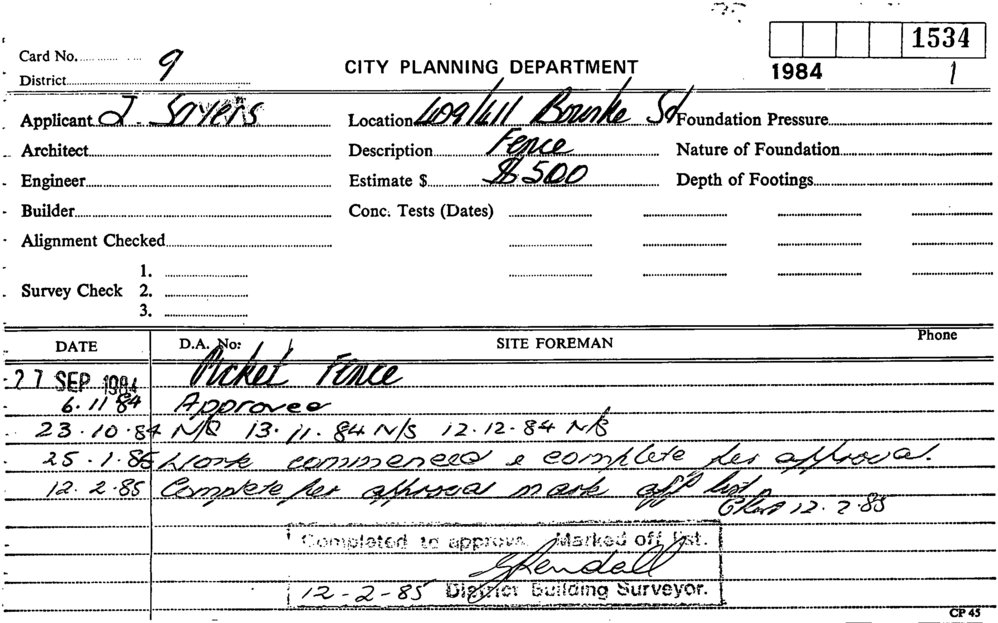 1534
Card No. 9
CITY PLANNING DEPARTMENT
1984 1
District
Applicant J. Sayers
Location 409/411 Bourke St
Foundation Pressure
Architect
Description Fence
Nature of Foundation
Engineer
Estimate $ $500
Depth of Footings
Builder
Conc. Tests (Dates)
Alignment Checked
1.
Survey Check 2.
3.
DATE D.A. No: SITE FOREMAN Phone
27 SEP 1984 Picket Fence
6.11 84 Approved
23.10.84 N/S 13.11.84 N/S 12.12.84 N/S
25.1.85 Work commenced & complete per approval.
12.2.85 Complete per approval mark off list
12.2.85
Completed to approval. Marked off list.
12-2-85 District Building Surveyor.
CP 45